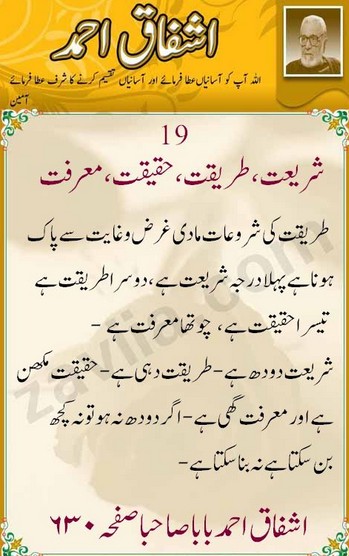 اشفاق احمد
اللہ آپ کو آسانیاں عطا فرمائے اور آسانیاں تقسیم کرنے کا شرف عطا فرمائے
آمین
19
شریعت، طریقت، حقیقت، معرفت
طریقت کی شروعات مادی غرض وغایت سے پاک
ہونا ہے پہلا درجہ شریعت ہے، دوسرا طریقت ہے
تیسرا حقیقت ہے، چوتھا معرفت ہے -
شریعت دودھ ہے - طریقت دہی ہے - حقیقت مکھن
ہے اور معرفت گھی ہے - اگر دودھ نہ ہو تو نہ کچھ
بن سکتا ہے نہ بنا سکتا ہے -
اشفاق احمد بابا صاحبا صفحہ ۶۳۰
zavija.com